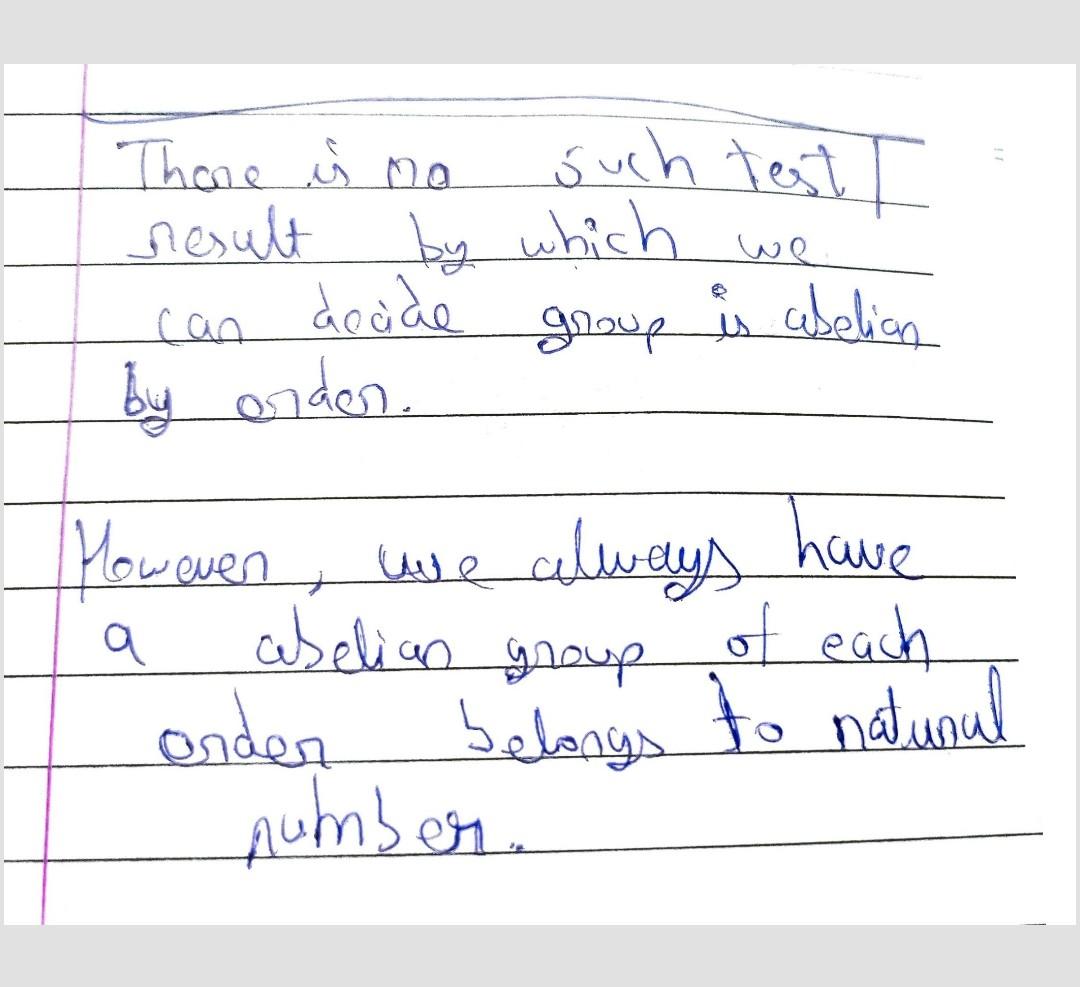 There is no such test
result by which we
can decide group is abelian
by order.
However, we always have
a abelian group of each
order belongs to natural
number.